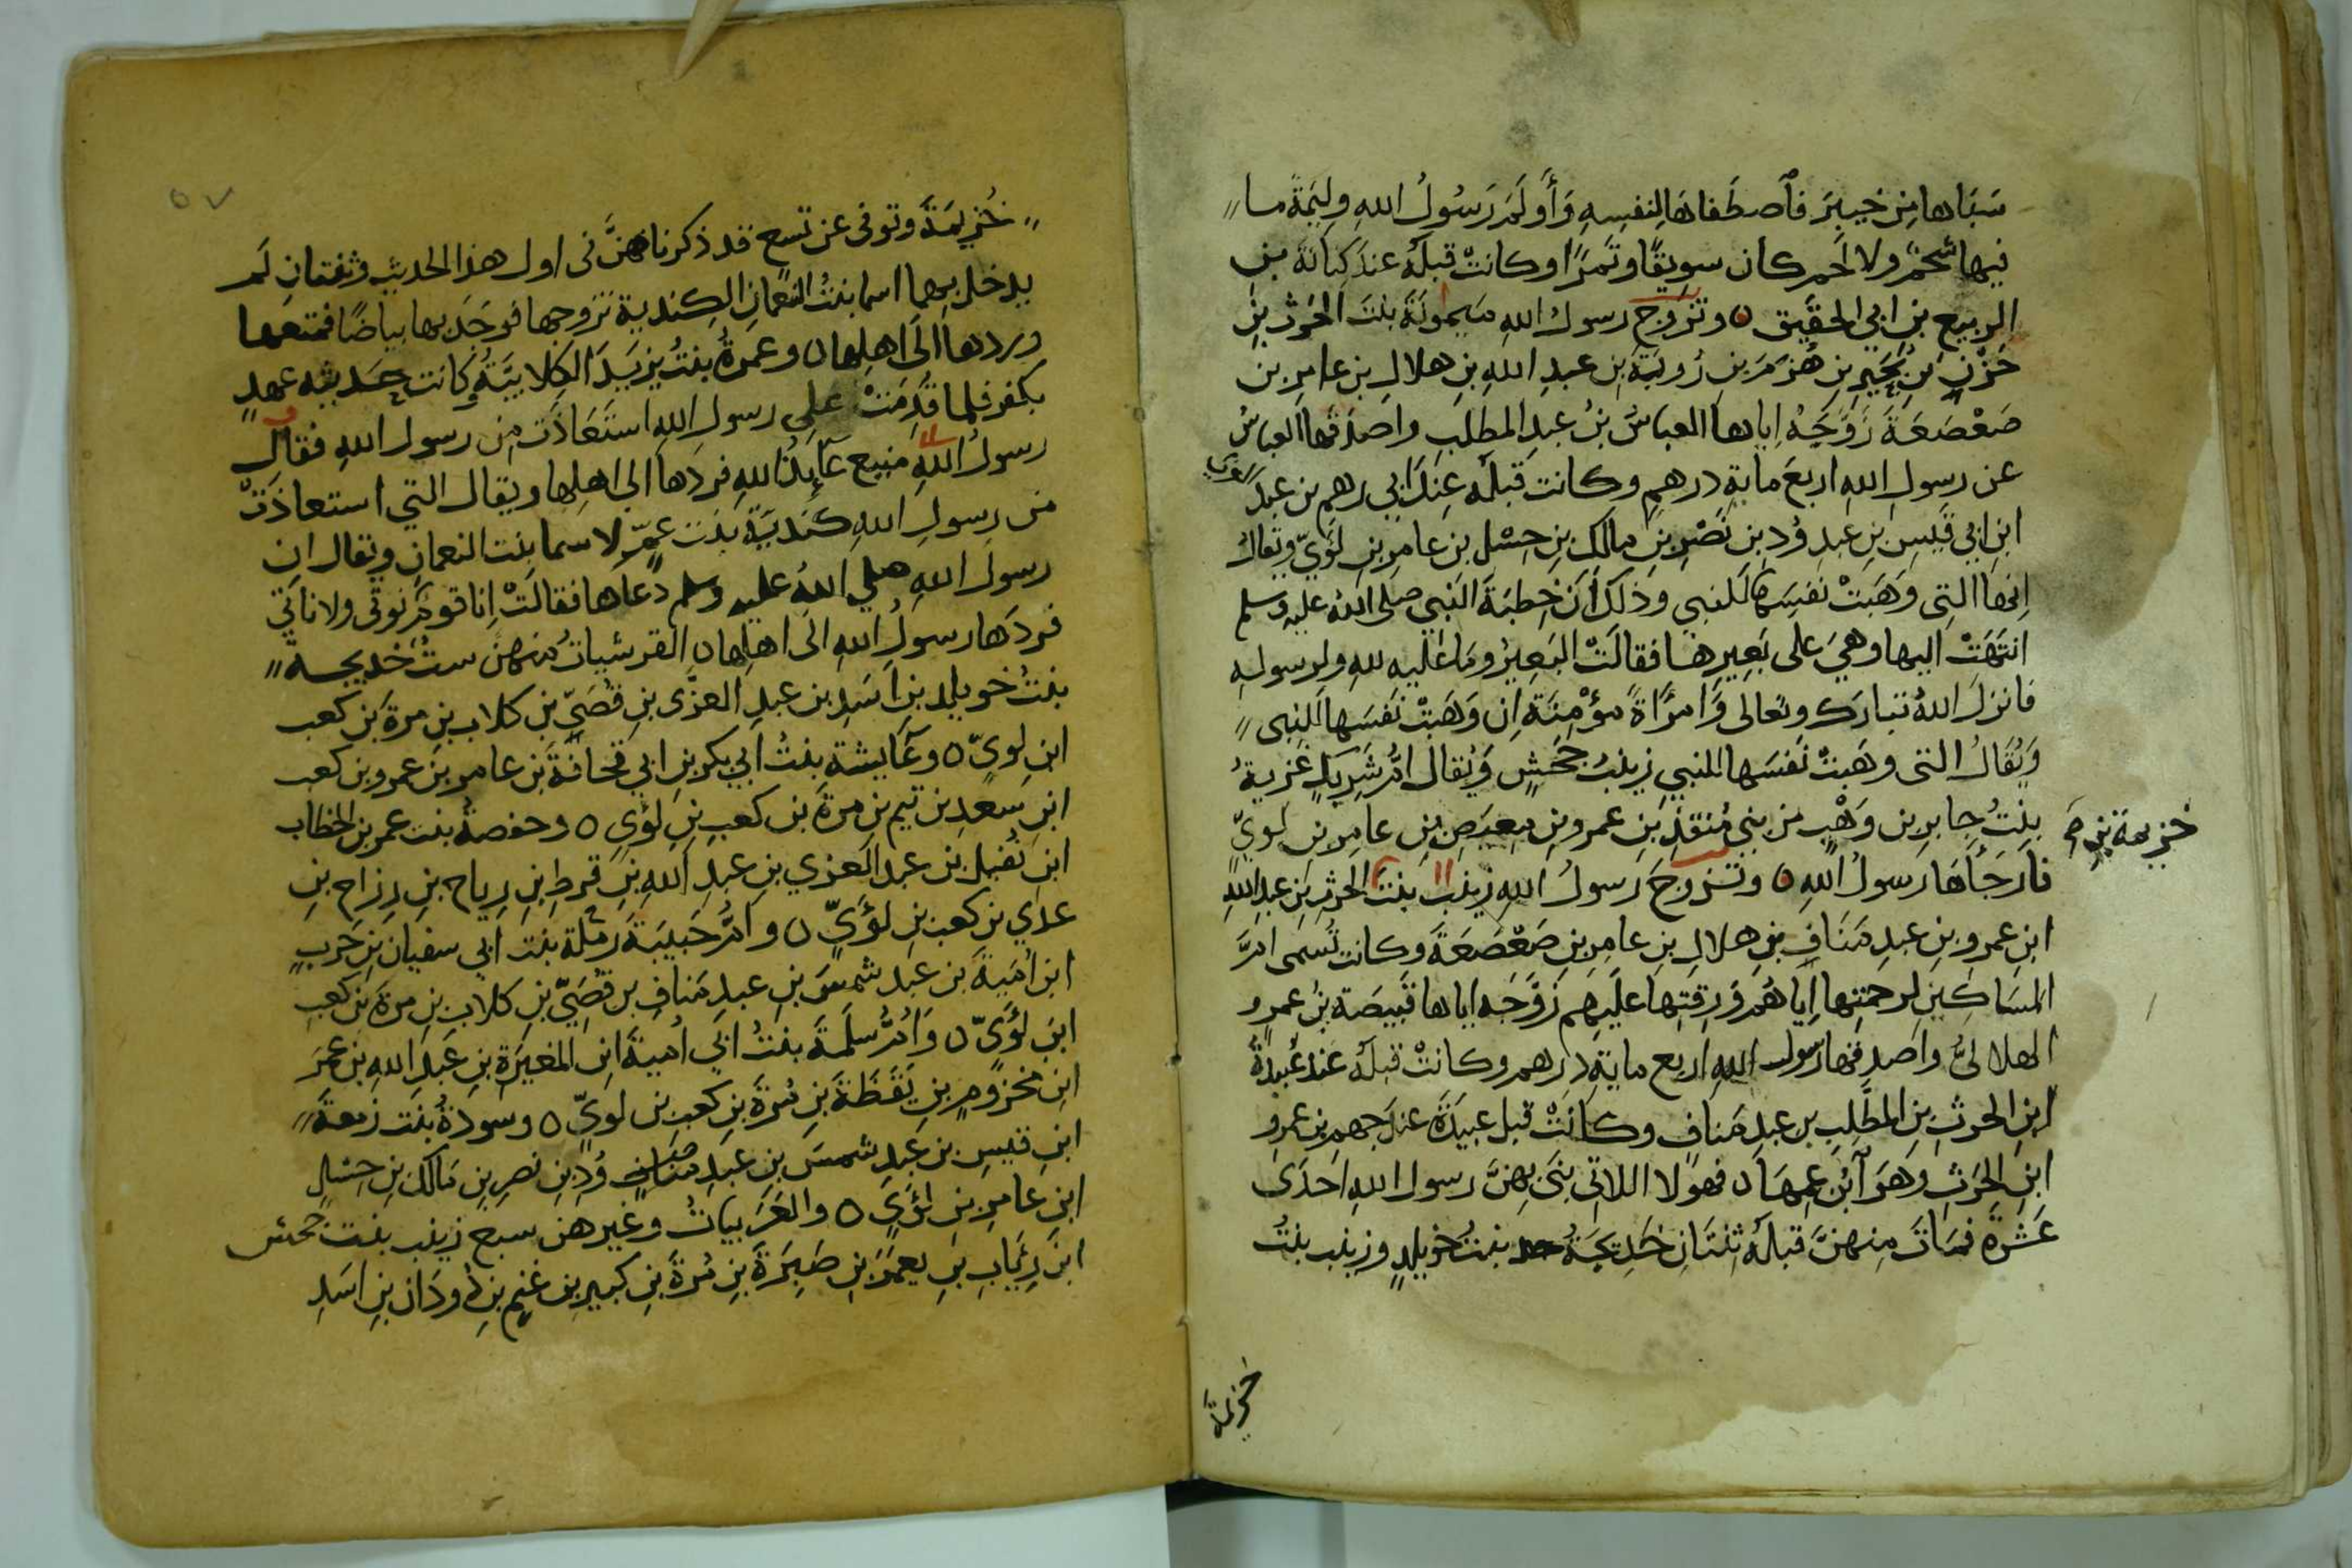 سَبَاها مِن خيبرَ فٱصطَفاهَا لِنفسِهِ وَأَولَمَ رَسُولُ اللهِ وليَمةً ما
فيها شَحمٌ ولا لحم كان سويقًا وتمرًا وكانتْ قبلَهُ عندَ كِنانَةَ بنِ
الربيع بنِ ابي الحقَيق ٥ وتزوج رسولُ اللهِ ميمونَةَ بنتَ الحرث بنِ
حَزْنٍ بنِ بُجَيرِ بنِ هُزَمَ بنِ رُويبَةَ بن عبدِ اللهِ بنِ هلالِ بنِ عامرِ بن
صَعْصَعَةَ زَوَّجَهُ اياها العباسُ بنُ عبدِ المطلبِ واصدَقها العباسُ
عن رسولِ اللهِ اربعَ مايةِ درهمٍ وكانت قبلَه عِندَ ابي رهم بن عبد العزى
ابنِ ابي قيسِ بنِ عبدِ وُدِ بنِ نَصْرِ بنِ مالك بنِ حِسْلِ بن عامرِ بنِ لؤيّ ويُقالُ
اِنها التِى وَهَبتْ نفسَها للنبي وذلكَ أنَ خِطبَةَ النَبى صلى اللهُ عليه وسلم
انتَهَتْ اليها وهيَ على بَعِيرِها فقالَتْ البَعيرُ ومَا عَليه للهِ ولرسولهِ
فانزلَ اللهُ تبارَك وتعالى وَامرَأةً مؤمِنَة اِن وَهَبتْ نَفسَها للنبى
وَيُقَالُ التى وهَبتْ نَفسَها للنبي زينبُ بنت جحَشٍ وَيُقال امُّ شَرِيكٍ غَزيةُ
بِنتُ جابرِ بن وَهْبٍ من بني مُنقِذِ بنِ عمرو بنِ معِيصِ بنِ عامِرِ بنِ لويّ
خزيمة بنِ
فارَجَأها رَسولُ اللهِ ٥ وتزوجَ رسولُ اللهِ زينبَ بنتَ الحرثِ بن عبدِ اللهِ
ابنِ عمرو بنِ عبدِ مَنَافِ بنِ هلالِ بنِ عامِرِ بنِ صَعْصَعَةَ وكانت تُسَمى امَّ
المسَاكينِ لرحمتِها اِيَاهُم وَرِقتِها عليَهِم زَوَّجَه اياها قبيصَة بنُ عمرٍو
الهلاليُّ واصدقها رسول اللهِ اربع مايةِ درهم وكانتْ قبلَهُ عند عُبيدةَ
ابنِ الحرثِ بنِ المطَّلِبِ بن عبدِ مَنافٍ وكانَتْ قبل عبيدَةَ عند جهمِ بن عمرِو
ابنِ الحَرثِ وهَوَ ٱبنُ عمِهَا ٥ فهولا اللاتي بَنَى بِهِنَّ رسول اللهِ احدَى
عَشَرةَ فمَاتَ مِنهنَّ قبلَهُ ثِنتانِ خَدِيجَةُ بنتُ خويلدٍ وزينب بنتُ
خزيمة
٥٧
خُزيمَةَ وتوفى عن تسع قد ذكرناهُنَّ فى اول هذا الحديثِ وثِنتانِ لَم
يدخل بِهما اسما بنتُ النعمانِ الكِنديةُ تزوجها فوجَدَ بها بياضًا فمتعها
وردها الَى اهلِها ٥ وعمرةُ بنتُ يزيَدَ الكِلابيَّةُ وكانت حَديثه عهدٍ
بكفر فلما قدِمَتْ على رسولِ اللهِ استَعاذَت مِن رسول اللهِ فقال
رسولُ اللهِ منيع عآيذُ اللهِ فردها الى اهلِها ويقال التي استعاذتْ
من رسولِ اللهِ كندِيَةٌ بنت عمٍّ لاسما بنت النعمانِ ويقال ان
رسولَ اللهِ صلي اللهُ عليه وسلم دعاها فقالَتْ اِنا قومٌ نوتَى ولا ناتى
فردَها رسولُ اللهِ الَى اهلِها ٥ القرشياتُ منهنَ ستٌ خديجةُ
بنتُ خويلدِ بنِ اسَدِ بن عبدِ العزَّى بنِ قُصَيّ بنِ كلاب بنِ مرةَ بنِ كعب
ابنِ لويّ ٥ وعآيشة بنتُ ابي بكرِ بنِ ابي قحافَةَ بنِ عامر بنِ عمرو بنِ كعب
ابنِ سَعدِ بنِ تيمِ بنِ مرةَ بنِ كعبِ بنِ لؤي ٥ وحفصةُ بنت عمر بن الخطاب
ابنِ نُفيل بنِ عبد العزي بنِ عبدِ اللهِ بنِ قرط بنِ رِياح بنِ رزاح بنِ
عدَي بنِ كعب بنِ لؤيّ ٥ وامُّ حَبيبَةَ رَملة بنت ابي سفيانَ بن حَربٍ
ابنِ أميَةَ بن عبد شمسَ بنِ عبدِ مَنافِ بن قُصيّ بنِ كلاب بنِ مرةَ بنِ كعبِ
ابنِ لؤَيّ ٥ وَامُّ سلَمةَ بنتُ ابي أميةَ ابنِ المغيرَةِ بنِ عَبدِ اللهِ بنِ عمَرَ
ابنِ مَخزُومِ بنِ يَقَظةَ بنِ مُرةَ بنِ كعب بنِ لويّ ٥ وسودةُ بنت زمعَةَ
ابنِ قيسِ بنِ عبدِ شمسَ بنِ عبدِ مناف وُدِ بنِ نصرِ بنِ مالك بنِ حِسْلِ
ابنِ عامرِ بنِ لؤَي ٥ والعَرَبياتُ وغيرهن سبع زينب بنت جحش
ابنِ رِيَابِ بنِ يعمَرَ بنِ صَبرَةَ بنِ مُرةَ بنِ كبيرِ بنِ غنمِ بنِ دودَان بنِ اسَدِ